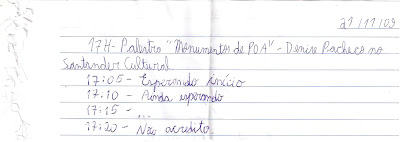 21/11/09
17H - Palestra "Monumentos de POA" - Denise Pacheco no
Santander Cultural
17:05 - Esperando início
17:10 - Ainda esperando
17:15 - ...
17:20 - Não acredito.